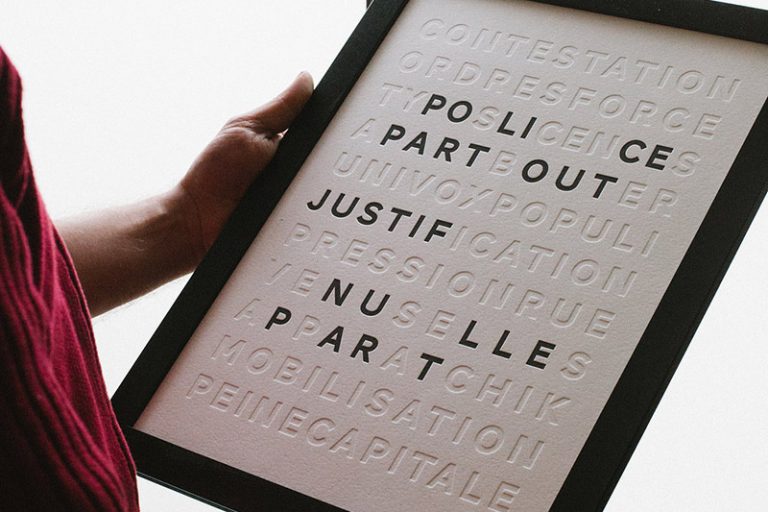 CONTESTATION
ORDRESFORCE
TYPOSLICENCES
APARTBOUTER
UNIVOXPOPULI
JUSTIFICATION
PRESSIONRUE
VENUSELLES
APPARATCHIK
MOBILISATION
PEINECAPITALE